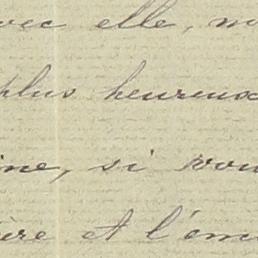 avec elle, no
plus heureux
ine, si vou
ère et l'om